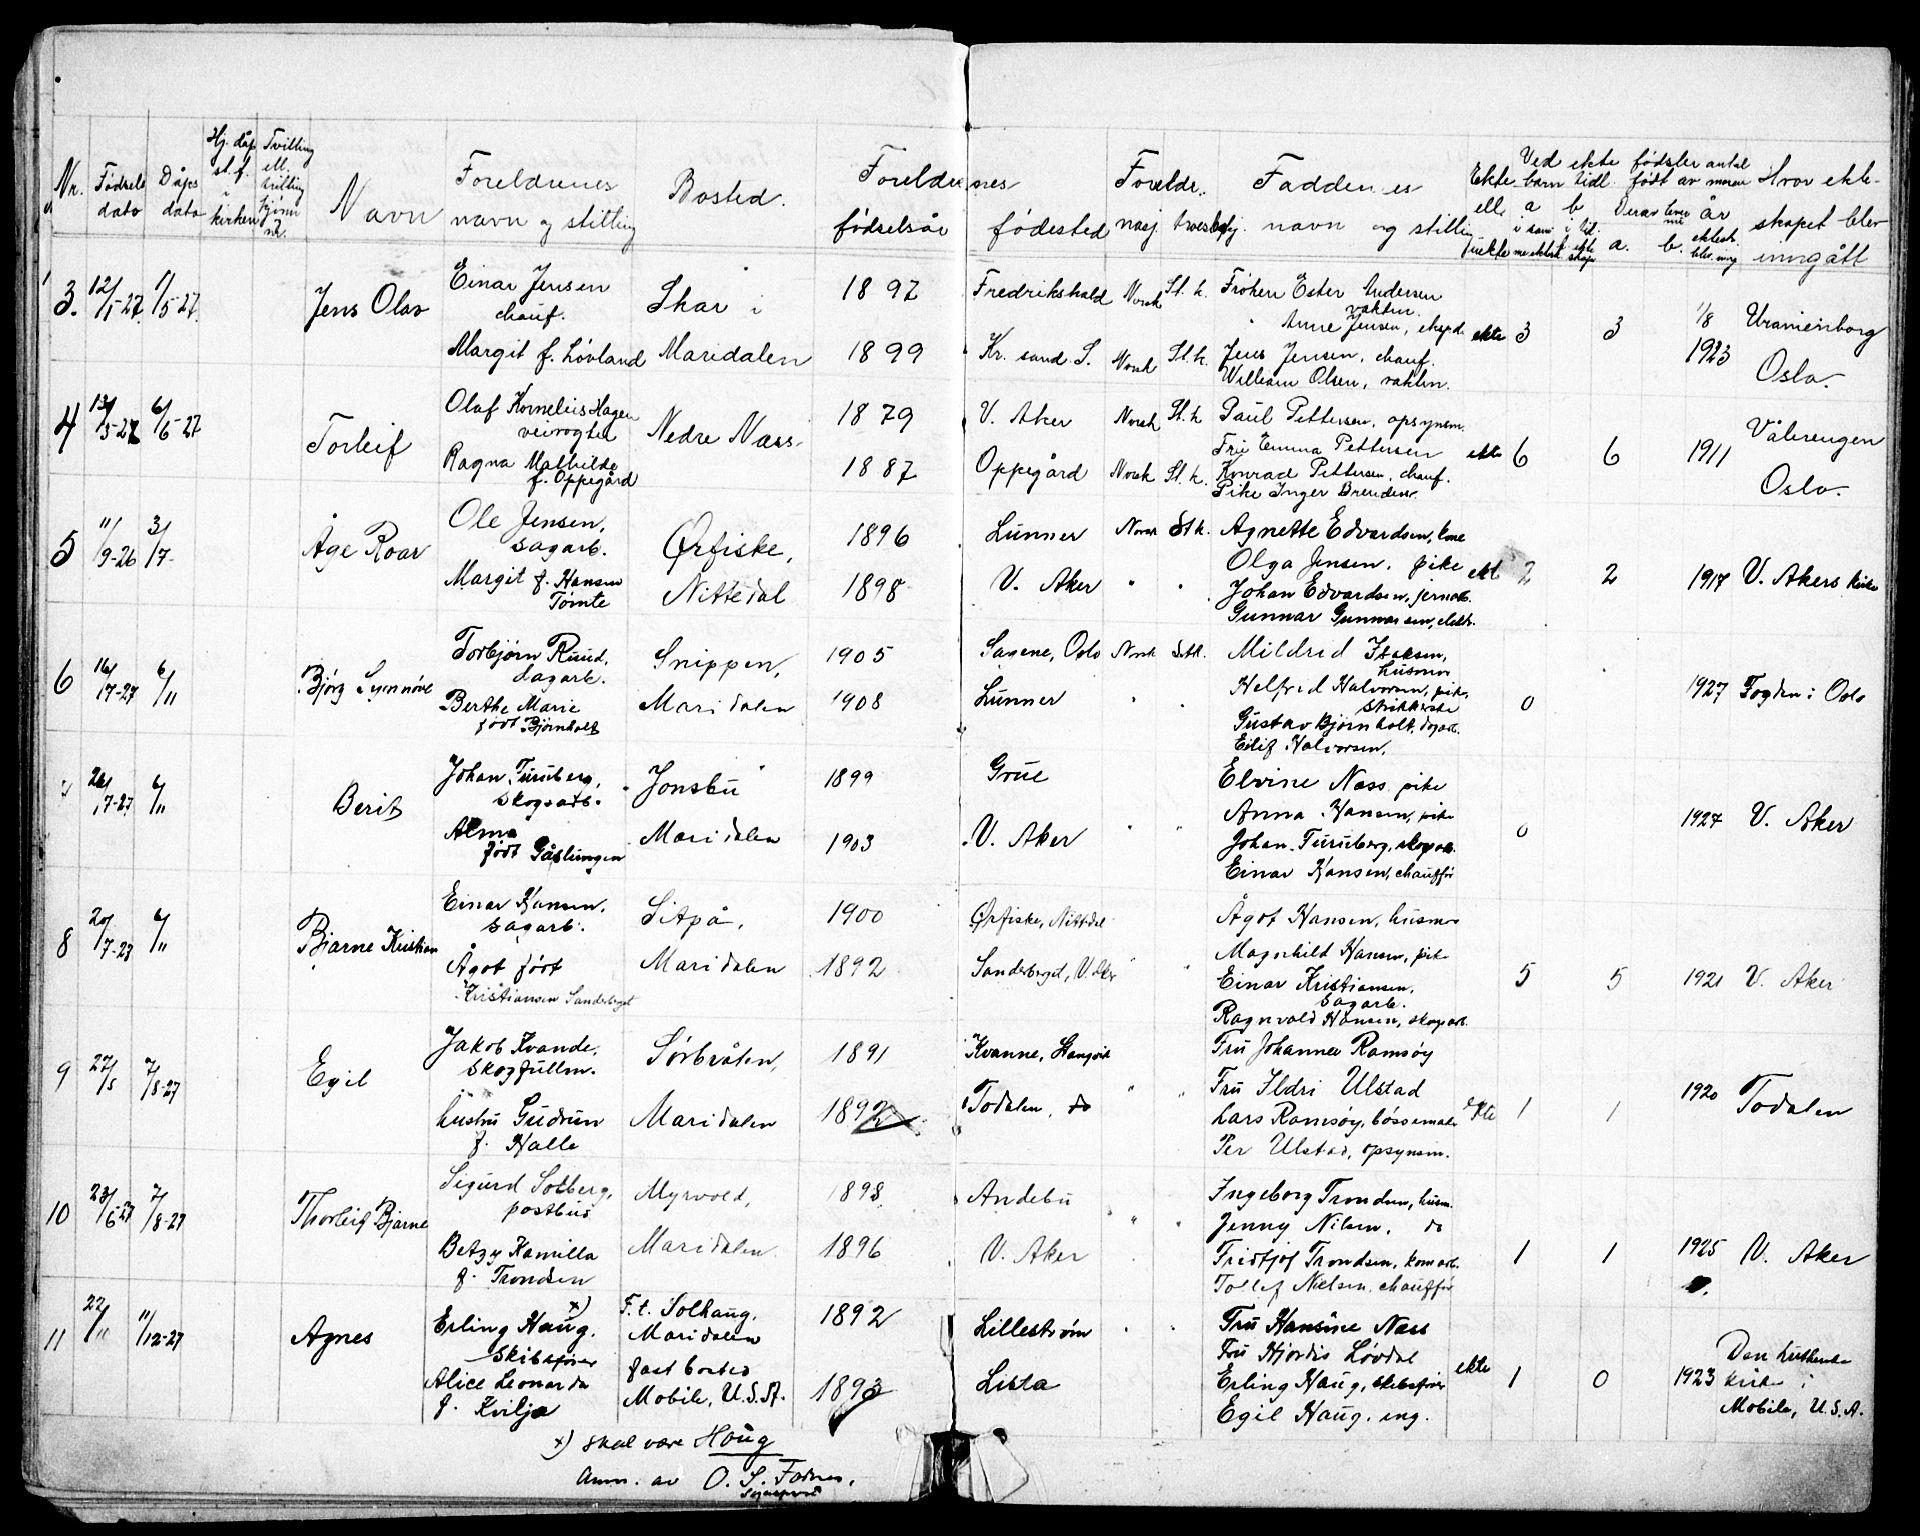 Nr. Fødsels dato Dåps dato Hj. dåp st. f. i kirken Tvilling ell. trilling Navn Foreldrenes navn og stilling Bosted. Foreldrenes fødselsår fødested Foreldr. nasj. Faddernes navn og stilling Ekte ell. uekte Ved ekte fødsler antal barn tidl. født av moren a b Derav lever a. b. år Hvor ekteskapet blev inngått
3. 12/1-27. 1/5-27. Jens Olav
Einar Jensen Skar i 1897 Fredrikshald Norsk St. k. Frøken Ester Andersen
chauf. Anne Jensen, eksped. ekte 3 3 1/8 1923 Uranienborg
Margit f. Løvland Maridalen 1899 Kr. sand S. Norsk St. k. Jens Jensen, chauf.
William Olsen, vaktm. Oslo.
4 13/5-27 6/6-27 Torleif
Olaf Kornelius Hagen Nedre Næss 1879 V. Aker Norsk St. k. Paul Pettersen, opsynsm.
veivogter Fru Emma Pettersen ekte 6 6 1911 Vålerengen
Ragna Mathilde 1887 Oppegård Norsk St. k. Konrad Pettersen, chauf. Oslo.
f. Oppegård Pike Inger Brenden
5 11/9-26 3/7- Åge Roar
Ole Jensen, Ørfiske, 1896 Lunner Norsk St k. Agnette Edvardsen, kone
sagarb. Olga Jensen, pike
Margit f. Hansen Nittedal 1898 V. Aker " " Johan Edvardsen, jernarb. ekt 2 2 1917 V. Akers kirke
Tømte Gunnar Gunnarsen, elektr.
6 16/7-27 6/11 Bjørg Synnøve
Torbjørn Ruud, Snippen, 1905 Sagene, Oslo Norsk Stk. Mildrid Isaksen,
dagarb. husmor
Berthe Marie Maridalen 1908 Lunner " " Helfrid Halvorsen, pike, 0 1927 Fogden i Oslo
født Bjørnholt strikkerske
Gustav Bjørnholt, dagarb.
Eilif Halvorsen.
7 26/7-27 6/11 Berit
Johan Furuberg, Jonsbu 1899 Grue Elvine Næss pike
skogsarb. Anna Hansen, pike
Alma Maridalen 1903 V. Aker " " Johan Furuberg, skogarb. 0 1927 V. Aker
født Gåslungen Einar Hansen, chauffør
8 20/7-27 6/11 Bjarne Kristian
Einar Hansen, Sitpå, 1900 Ørfiske, Nittedal Ågot Hansen, husmor
sagarb. Magnhild Hansen, pike
Ågot født Maridalen 1892 Sanderberget, V. Aker " " Einar Kristiansen, 5 5 1921 V. Aker
Kristiansen Sanderberget sagarb.
Ragnvald Hansen, skogarb.
9 27/5 7/8-27 Egil
Jakob Kvande, Sørbråten, 1891 Kvanne, Stangvik Fru Johanne Ramsøy
skogfullm. Fru Ildri Ulstad
hustru Gudrun Maridalen 1892 Todalen, do " " Lars Ramsøy, bøssemaker ekte 1 1 1920 Todalen
f. Halle Per Ulstad, opsynsm.
10 23/6-27 7/8-27 Thorleif Bjarne
Sigurd Solberg, Myrvold, 1898 Andebu Ingeborg Trondsen, husm.
postbud " " Jenny Nilsen, do
Betzy Kamilla Maridalen 1896 V. Aker Fridtjof Trondsen, komarb. 1 1 1925 V. Aker
f. Trondsen Tollef Nielsen, chauffør
11 22/11 11/12-27 Agnes
Erling Haug, x) F. t. Solhaug, 1892 Lillestrøm " " Fru Hansine Næss
skibsfører Maridalen Fru Hjørdis Løvdal
Alice Leonarda fast bosted 1893 Lista Erling Haug, skibsfører ekte 1 0 1923 Den lutherske kirke i
f. Kvilja Mobile, U.S.A. Egil Haug, ing. Mobile, U.S.A.
x) skal være Houg
Anm. av O. S. Fodnes,
sogneprest